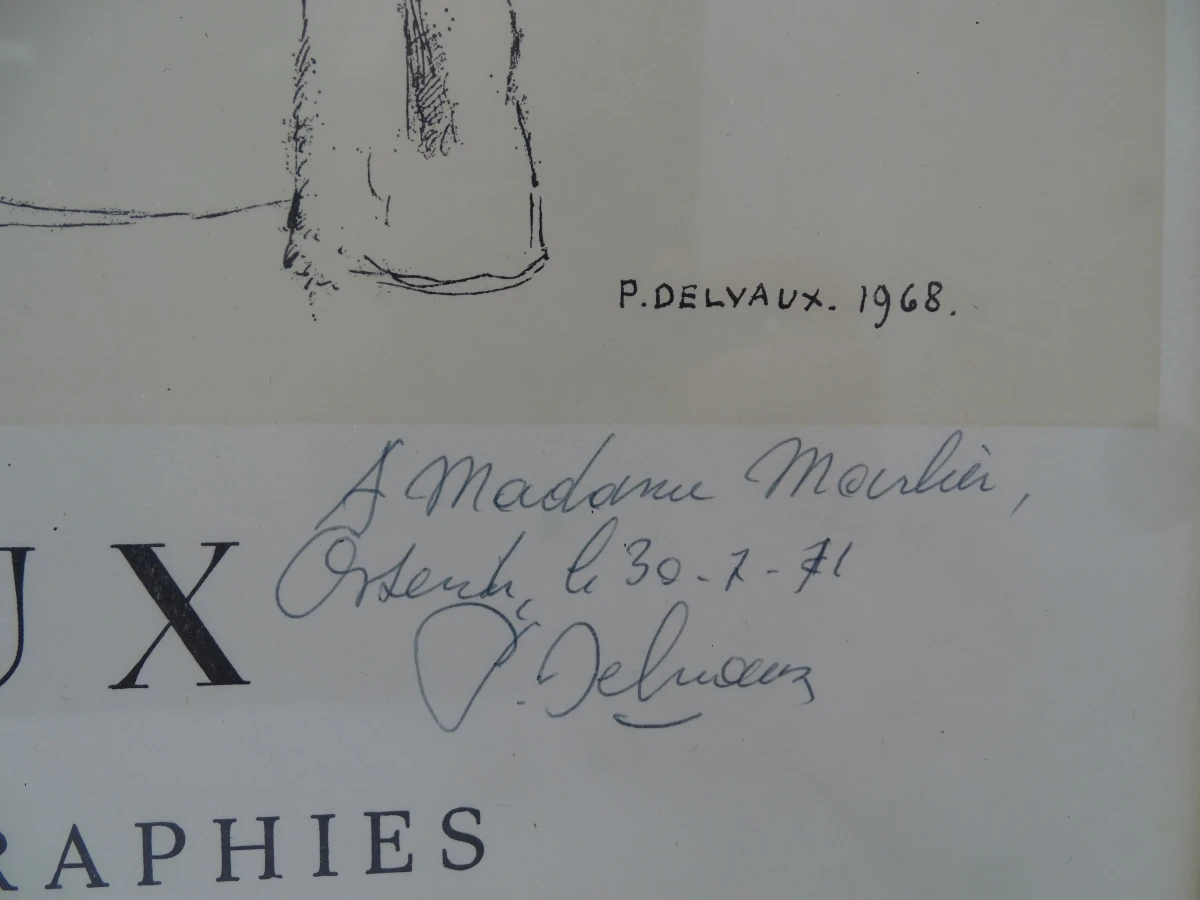 P. DELVAUX. 1968.
A Madame
UX
le 30-7-71
P. Delvaux
RAPHIES